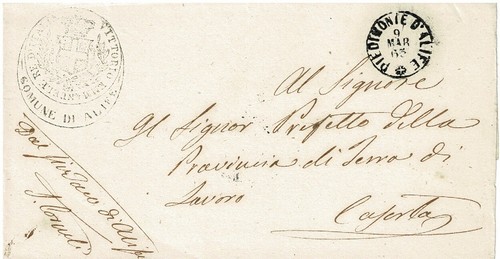 VITTORIO EMANUELE RE D'ITALIA
COMUNE DI ALIFE
PIEDIMONTE D'ALIFE
9
MAR
63
Al Signore
Il Signor Prefetto della
Provincia di Terra di
Lavoro
Caserta
Dal Sindaco di Alife